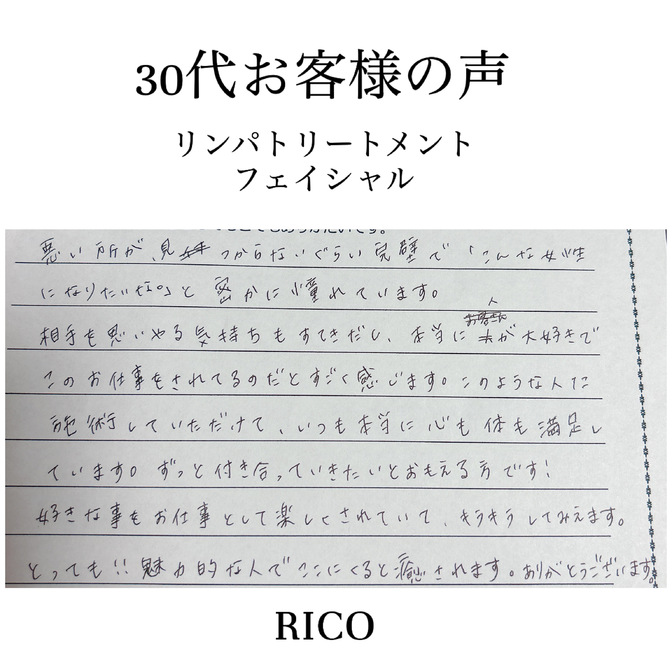 30代お客様の声
リンパトリートメント
フェイシャル
悪い所が、見つからないぐらい完璧で「こんな女性
になりたいな。」と密かに憧れています。
相手を思いやる気持ちもすてきだし、本当に人が大好きで
このお仕事をされてるのだとすごく感じます。このような人に
施術していただけて、いつも本当に心も体も満足し
ています。ずっと付き合っていきたいとおもえる方です!
好きな事をお仕事として楽しくされていて、キラキラしてみえます。
とっても!!魅力的な人でここにくると癒されます。ありがとうございます。
RICO